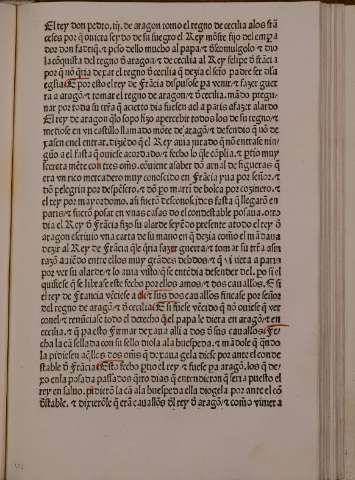 El rey don pedro .iij. de aragon tomo el regno de cecilia a los frã
ceses por q̃ quiera seydo de su suegro el Rey mõfre fijo del empa
dor don fadriq̃. ⁊ peso dello mucho al papa ⁊ dscomulgolo ⁊ dio
la cõquista del regno d̃ aragõ ⁊ de cecilia al Rey felipe d̃ frãcia
por q̃ nõ q̃ria dexar el regno d̃ cecilia q̃ dezia el scto padre ser dl'a
eglia E por esto el rey de Frãcia dispusose pa venir. ⁊ fazer guer
ra a aragõ ⁊ tomar el regno de aragon ⁊ d̃ cecilia. mãdo pregu
nar por toda su trra q̃ a cierto dia fuesen a el a paris a fazer alarde
El rey de aragon q̃lo sopo fizo apercebir todos los de su regno ⁊
metiose en vn castillo llamado mõte de aragõ ⁊ defendio q̃ nõ de
xasen en el entrar. diziẽdo q̃ el Rey auia jurado q̃ nõ entrase nin
gũo a el fasta q̃ quiese acordado ⁊ fecho lo q̃le cõplia. ⁊ ptio muy
secreta mẽte con tres oms̃. cõuiene a saber dõ arnal de figueras q̃
era vn rico mercadero muy conoscido en Frãcia yua por señor. ⁊
dõ pelegrin por despẽsero. ⁊ dõ po marti de bolca por cozinero. ⁊
el rey por mayordomo. asi fuerõ desconoscidos fasta q̃ llegarõ en
paris ⁊ fuerõ posar en vnas casas do el condestable posaua. otro
dia el Rey d̃ Frãcia fizo su alarde seyẽdo presente a todo el rey d̃
aragon escriuio vna carta de su mano en q̃ dezia como el mãdaua
dezir al Rey de Frãcia q̃le q̃ria fazer guerra ⁊ tomar su trra a sin
razõ auiẽdo entre ellos muy grãdes debdos ⁊ q̃ viniera a paris
por ver su alarde ⁊ lo auia visto. q̃ se entẽdia defender del. po si el
quisiese q̃ se librase este fecho por ellos amos ⁊ dos cauallos. E si
el rey de Francia vẽciese a el ⁊ sus dos cauallos fincase por señor
del regno de aragõ ⁊ d̃ cecilia E si fuese vẽcido q̃ nõ ouiese q̃ ver
con el ⁊ renũciase todo el derecho q̃ el papa le diera en aragõ ⁊ en
cecilia. ⁊ q̃ pa esto firmar dexaua alli a dos d̃ sus cauallos Fe
cha la cã sellada con su sello diola a la huespeda. ⁊ mãdole q̃ q̃ndo
la pidiesen aq̃llos dos oms̃ q̃ dexaua gela diese por ante el conde
stable d̃ Frãcia Esto fecho ptio el rey ⁊ fuese pa aragõ. los q̃ de
xo en la posada passados q̃tro dias entendieron q̃ seria puesto el
rey en saluo. pidierõ la cã a la huespeda ella diogela por ante el cõ
dstable. ⁊ dixierõle q̃ erã cauallos dl rey d̃ aragõ. ⁊ como viniera